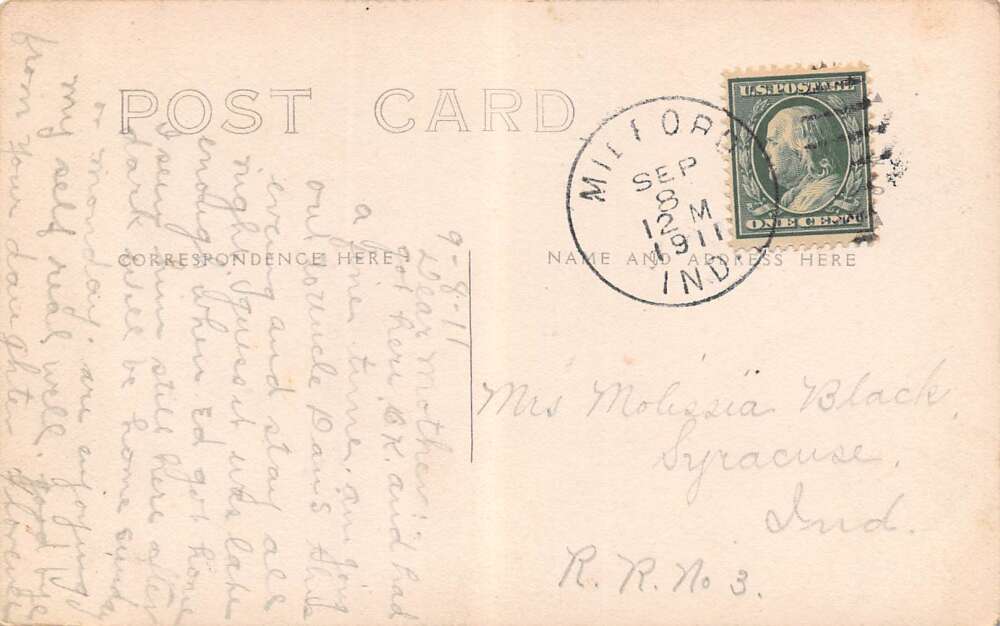 POST CARD
CORRESPONDENCE HERE
NAME AND ADDRESS HERE
U.S. POSTAGE
ONE CENT
MILFORD
SEP
8
12 M
1911
IND
9-8-11
Dear Mother: I
got here O.K. and had
a fine time. am going
out to uncle Dan's this
evening and stay all
night. I guess it was late
enough when Ed got home
I seen him still here after
dark. will be home sunday
or monday. are enjoying
my self real well. good bye
from your daughter Florence
Mrs Molissia Black,
Syracuse,
Ind.
R. R. No 3.